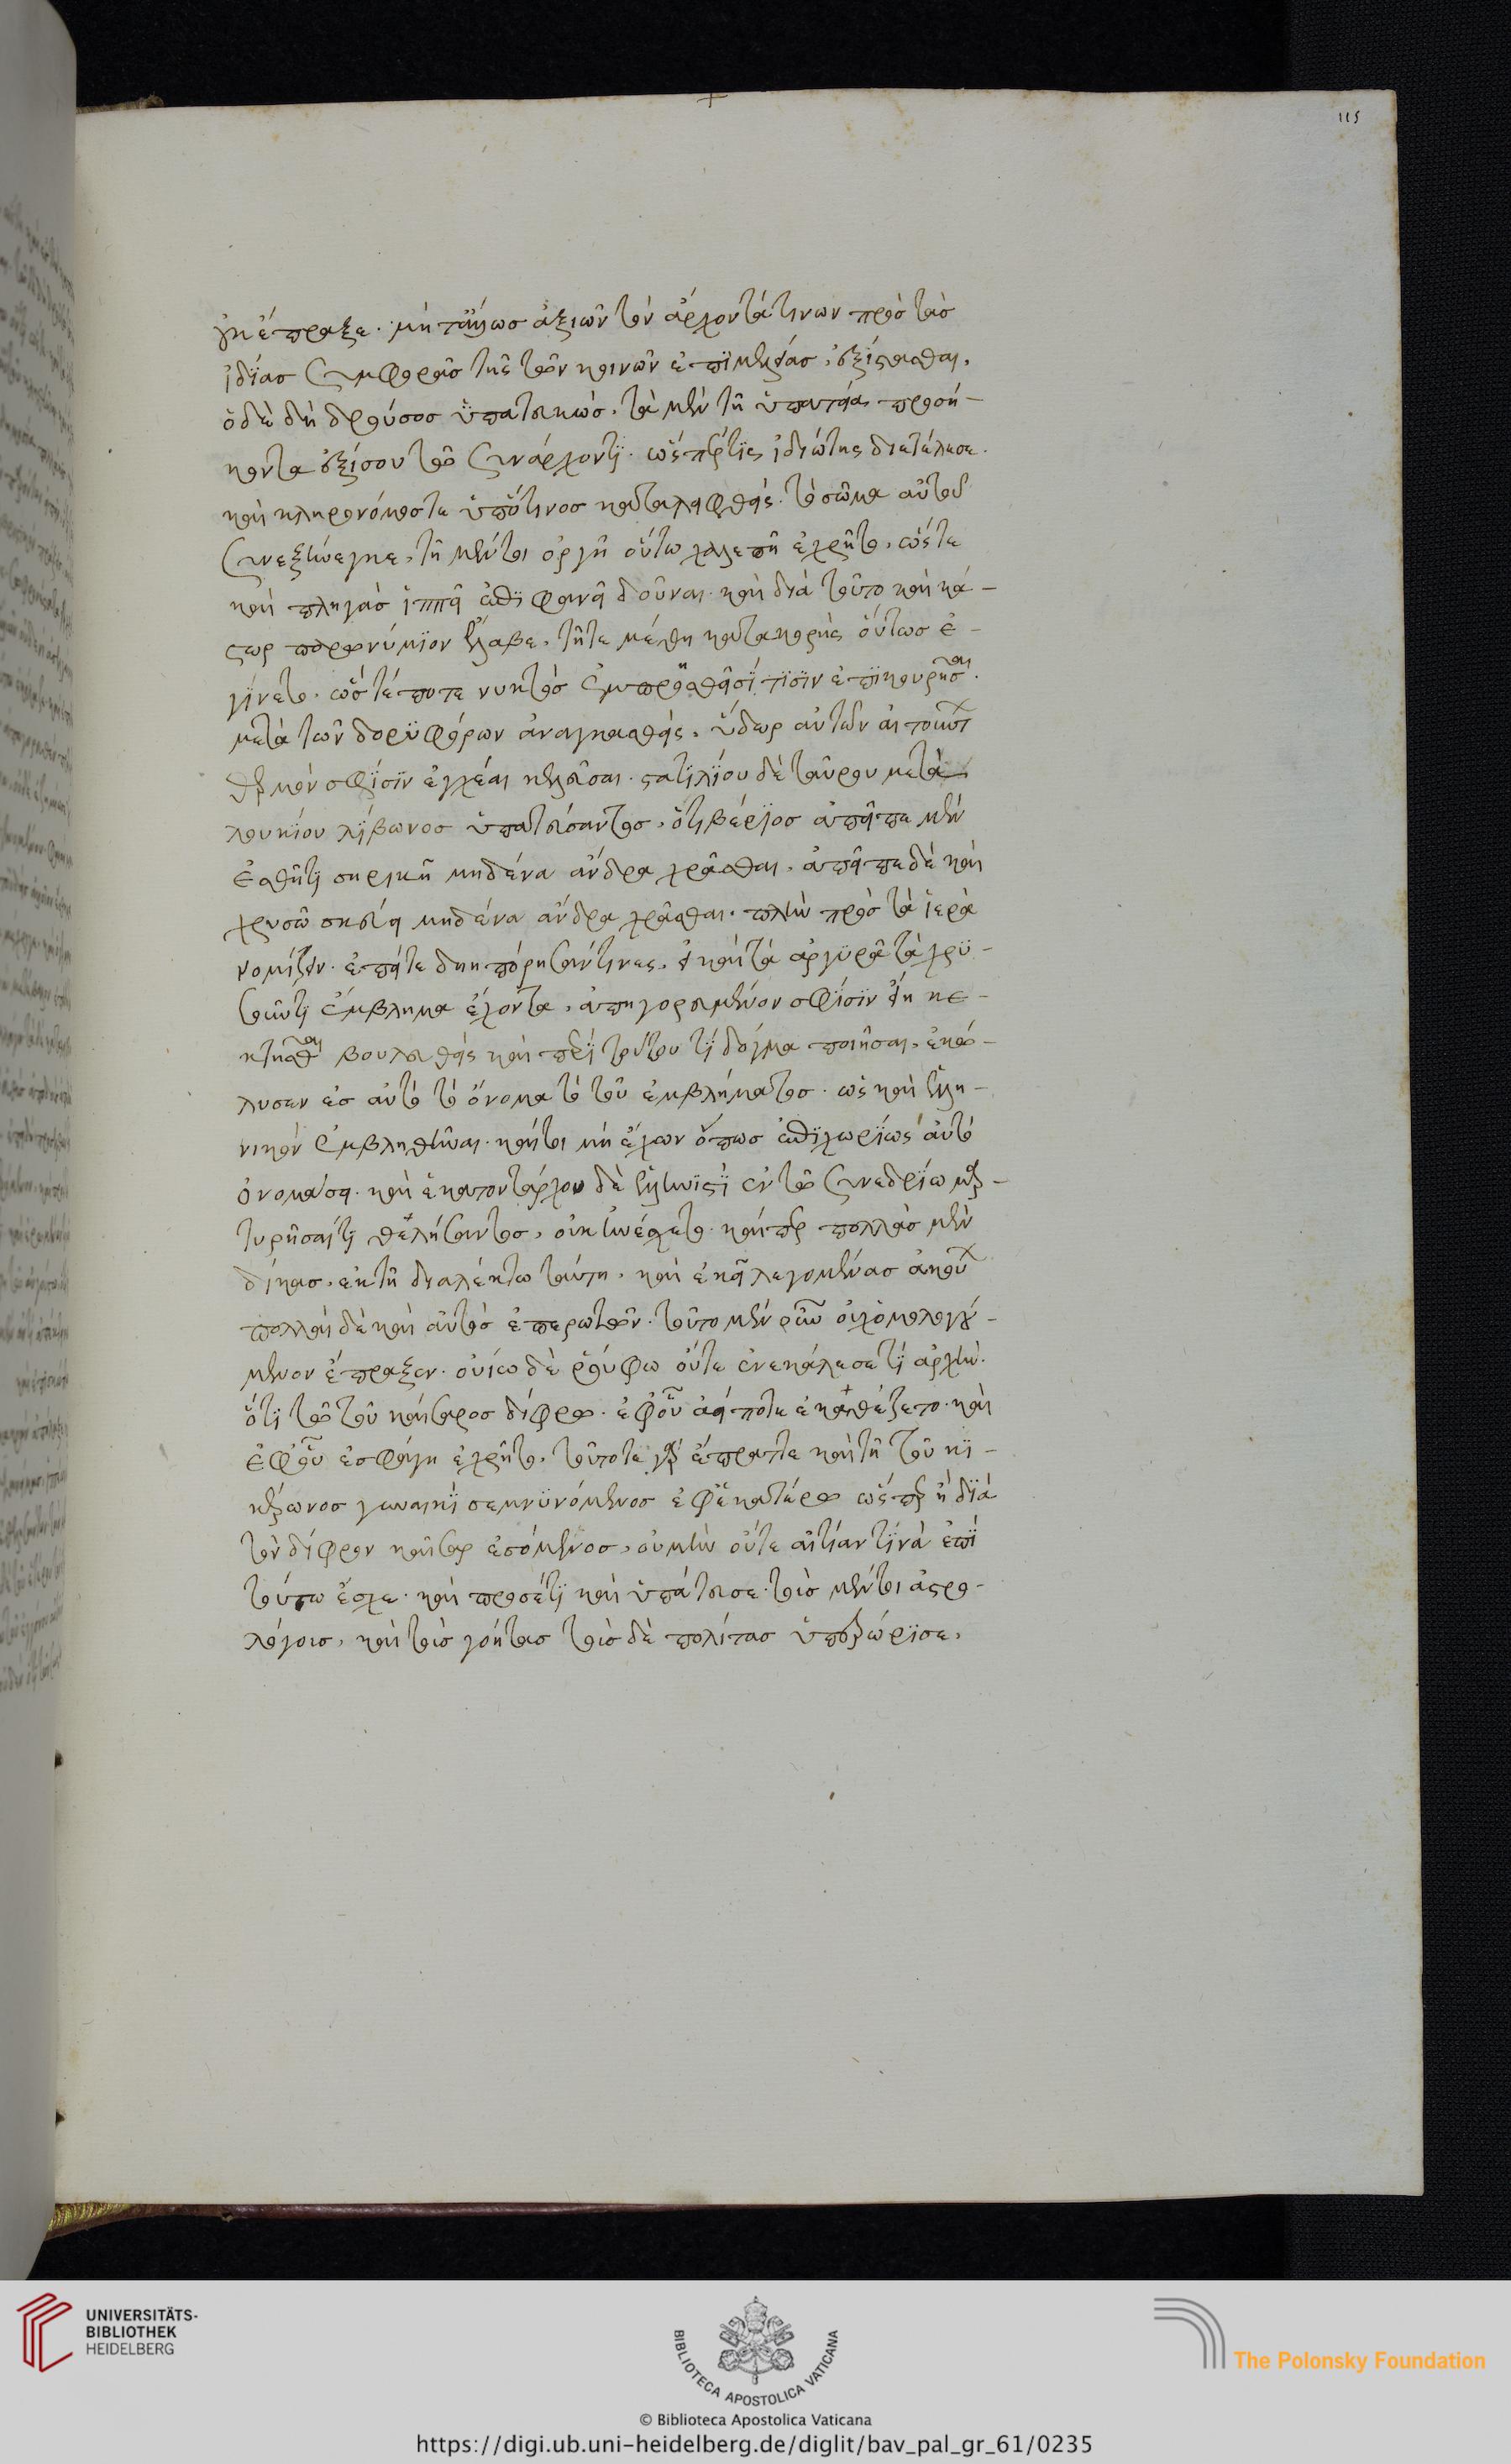 115
γκέπραξε. μήτ' ἄλλως ἀξιῶν τὸν ἄρχοντά τινων πρὸς τὰς
ἰδίας συμφορὰς τῆς τῶν κοινῶν ἐπιμελείας ἐξίστασθαι.
ὁ δὲ δὴ δροῦσος ὑπατευκὼς, τὰ μὲν τῇ ὑπατείᾳ προσή-
κοντα ἐξίσου τῷ συνάρχοντι. ὥσπερ τις ἰδιώτης διετέλεσε.
καὶ κληρονόμος τε ὑπό τινος καταλειφθεὶς. τὸ σῶμα αὐτοῦ
συνεξήνεγκε, τῇ μέντοι ὀργῇ οὕτω χαλεπῇ ἐχρῆτο, ὥστε
καὶ πληγὰς ἱππεῖ ἐπιφανεῖ δοῦναι. καὶ διὰ τοῦτο καὶ κά-
στωρ παρωνύμιον ἔλαβε, τῇ τε μέθῃ κατακορὴς οὕτως ἐ-
γίνετο. ὥστέ ποτε νυκτὸς ἐμπρησθεῖσί τισιν ἐπικουρῆσαι
μετὰ τῶν δορυφόρων ἀναγκασθεὶς, ὕδωρ αὐτῶν αἰτούντων
θερμὸν σφίσιν ἐγχέαι κελεῦσαι. στατιλίου δὲ ταύρου μετὰ
λουκίου λίβωνος ὑπατεύσαντος, ὁ τιβέριος ἀπεῖπε μὲν
ἐσθῆτι σηρικῇ μηδένα ἄνδρα χρᾶσθαι, ἀπεῖπε δὲ καὶ
χρυσῷ σκεύει μηδένα ἄνδρα χρᾶσθαι, πλὴν πρὸς τὰ ἱερὰ
νομίζειν. ἐπεί τε διηπόρησάν τινες, εἰ καὶ τὰ ἀργυρᾶ τὰ χρυ-
σοῦν τι ἔμβλημα ἔχοντα, ἀπηγορευμένον σφίσιν εἴη κε-
κτῆσθαι βουληθεὶς καὶ περὶ τούτου τι δόγμα ποιῆσαι, ἐκώ-
λυσεν ἐς αὐτὸ τὸ ὄνομα τὸ τοῦ ἐμβλήματος. ὡς καὶ ἑλλη-
νικὸν ἐμβληθῆναι. καίτοι μὴ ἔχων ὅπως ἐπιχωρίως αὐτὸ
ὀνομάσῃ. καὶ ἑκατοντάρχου δὲ ἑλληνιστὶ ἐν τῷ συνεδρίῳ μαρ-
τυρῆσαί τι θελήσαντος, οὐκ ἠνέσχετο. καίπερ πολλὰς μὲν
δίκας, ἐν τῇ διαλέκτῳ ταύτῃ, καὶ ἐκεῖ λεγομένας ἀκούων
πολλὰ δὲ καὶ αὐτὸς ἐπερωτῶν. τοῦτο μὲν οὖν οὐχ ὁμολογού-
μενον ἔπραξεν. οὐίῳ δὲ ῥούφῳ οὔτε ἐνεκάλεσέ τι ἀρχὴν.
ὅτι τῷ τοῦ καίσαρος δίφρῳ. ἐφ' οὗ ἀεί ποτε ἐκαθέζετο. καὶ
ἐφ' οὗ ἐσφάγη ἐχρῆτο, τοῦτό τε γὰρ ἔπραττε καὶ τῇ τοῦ κι-
κέρωνος γυναικὶ σεμνυνόμενος ἐφ' ἑκατέρῳ ὥσπερ ἢ διὰ
τὸν δίφρον καῖσαρ ἐσόμενος, οὐ μὴν οὔτε αἰτίαν τινὰ ἐπὶ
τούτῳ ἔσχε. καὶ προσέτι καὶ ὑπάτευσε. τοὺς μέντοι ἀστρο-
λόγοις, καὶ τοὺς γόητας τοὺς δὲ πολίτας ὑπερώρισε,
UNIVERSITÄTS-
BIBLIOTHEK
HEIDELBERG
BIBLIOTECA APOSTOLICA VATICANA
The Polonsky Foundation
© Biblioteca Apostolica Vaticana
https://digi.ub.uni-heidelberg.de/diglit/bav_pal_gr_61/0235